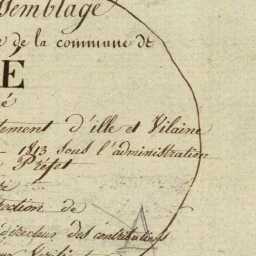 semblage
de la commune de
E
é
tement d'ille et Vilaine
1813 sous l'administration
Préfet
ection de
Directeur des contributions